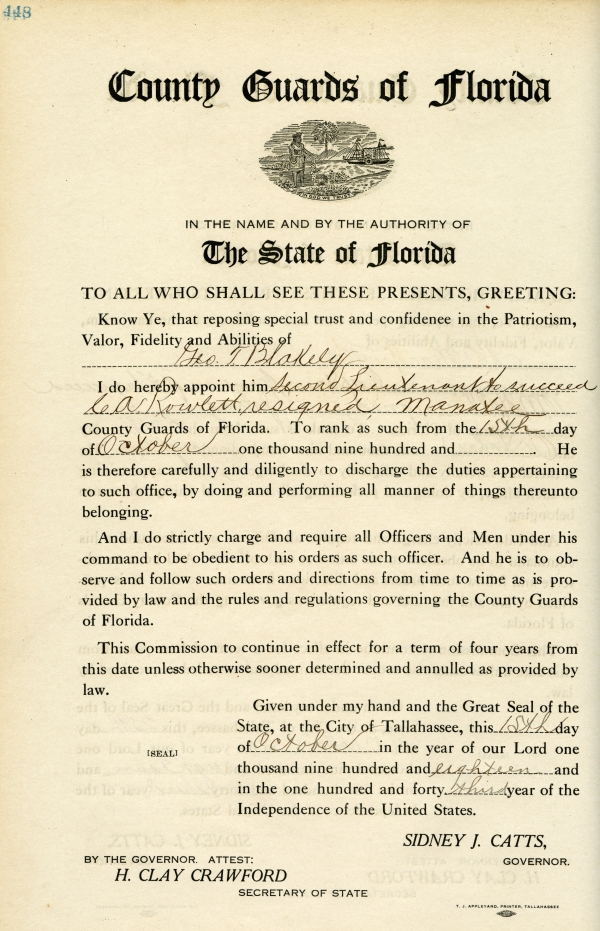 448
County Guards of Florida
IN GOD WE TRUST
IN THE NAME AND BY THE AUTHORITY OF
The State of Florida
TO ALL WHO SHALL SEE THESE PRESENTS, GREETING:
Know Ye, that reposing special trust and confidenee in the Patriotism,
Valor, Fidelity and Abilities of
Geo. T. Blakely
I do hereby appoint him Second Lieutenant to succeed
C. A. Rowlett, resigned, Manatee
County Guards of Florida. To rank as such from the 15th day
of October one thousand nine hundred and . He
is therefore carefully and diligently to discharge the duties appertaining
to such office, by doing and performing all manner of things thereunto
belonging.
And I do strictly charge and require all Officers and Men under his
command to be obedient to his orders as such officer. And he is to ob-
serve and follow such orders and directions from time to time as is pro-
vided by law and the rules and regulations governing the County Guards
of Florida.
This Commission to continue in effect for a term of four years from
this date unless otherwise sooner determined and annulled as provided by
law.
Given under my hand and the Great Seal of the
State, at the City of Tallahassee, this 15th day
of October in the year of our Lord one
[SEAL]
thousand nine hundred and eighteen and
in the one hundred and forty third year of the
Independence of the United States.
SIDNEY J. CATTS,
GOVERNOR.
BY THE GOVERNOR. ATTEST:
H. CLAY CRAWFORD
SECRETARY OF STATE
T. J. APPLEYARD, PRINTER, TALLAHASSEE